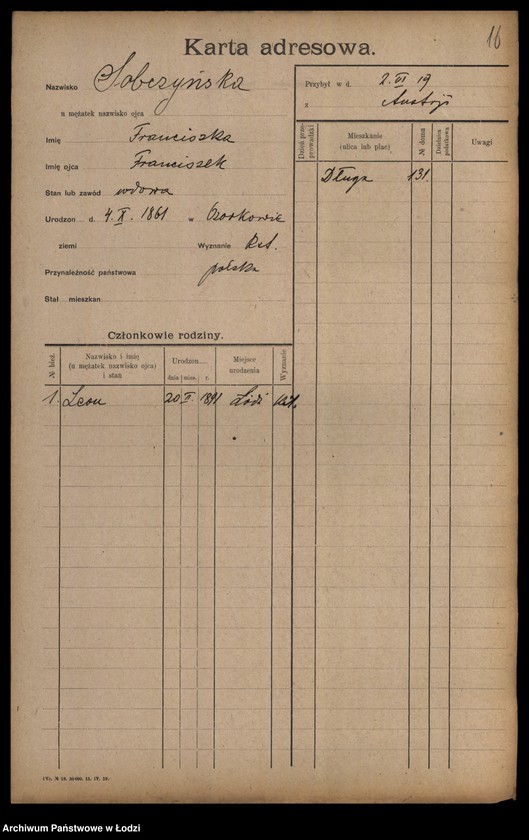 16
Karta adresowa.
Nazwisko Sobczyńska
u mężatek nazwisko ojca
Imię Franciszka
Imię ojca Franciszek
Stan lub zawód wdowa
Urodzon d. 4.X. 1861 w Ozorkowie
ziemi Wyznanie Kat.
Przynależność państwowa polska
Stał. mieszkan.
Przybył w d. 2.VI 19
z Austrji
Dzień przeprowadzki
Mieszkanie (ulica lub plac)
№ domu
Uwagi
Długa 131.
Członkowie rodziny.
№ bież.
Nazwisko i imię
(u mężatek nazwisko ojca)
i stan
Urodzon
dnia mies. r.
Miejsce
urodzenia
Wyznanie
1. Leon 20 II. 1891 Łódź kat.
Archiwum Państwowe w Łodzi